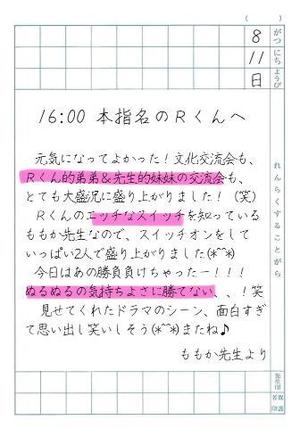 ( )
8 がつ
11 にち
日 ようび
16:00 本指名のRくんへ
れんらくすることがら
元気になってよかった！文化交流会も、
Rくん的弟弟＆先生的妹妹の交流会も、
とても大盛況に盛り上がりました！（笑）
Rくんのエッチなスイッチを知っている
ももか先生なので、スイッチオンをして
いっぱい2人で盛り上がりました(*^^*)
今日はあの勝負負けちゃったー！！！
ぬるぬるの気持ちよさに勝てない、、！笑
見せてくれたドラマのシーン、面白すぎ
て思い出し笑いしそう(*^^*)またね♪
ももか先生より